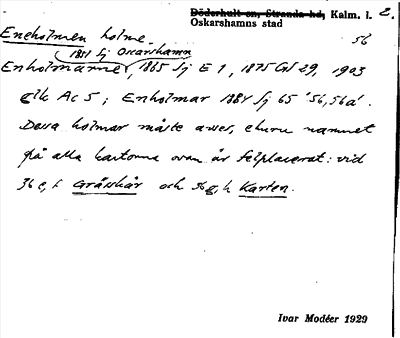 Döderhult sn, Stranda hd, Kalm. l. 2.
Oskarshamns stad
Eneholmen holme 56
1851 Sj Oscarshamn
Enholmarne, 1865 Sj E 1, 1875 GS 29, 1903
Ac 5; Enholmar 1884 Sj 65 '56, 56a'.
Dessa holmar måste avses, ehuru namnet
på alla kartorna ovan är felplacerat: vid
36 e, f Grässkär och 36 g, h Karten.
Ivar Modéer 1929